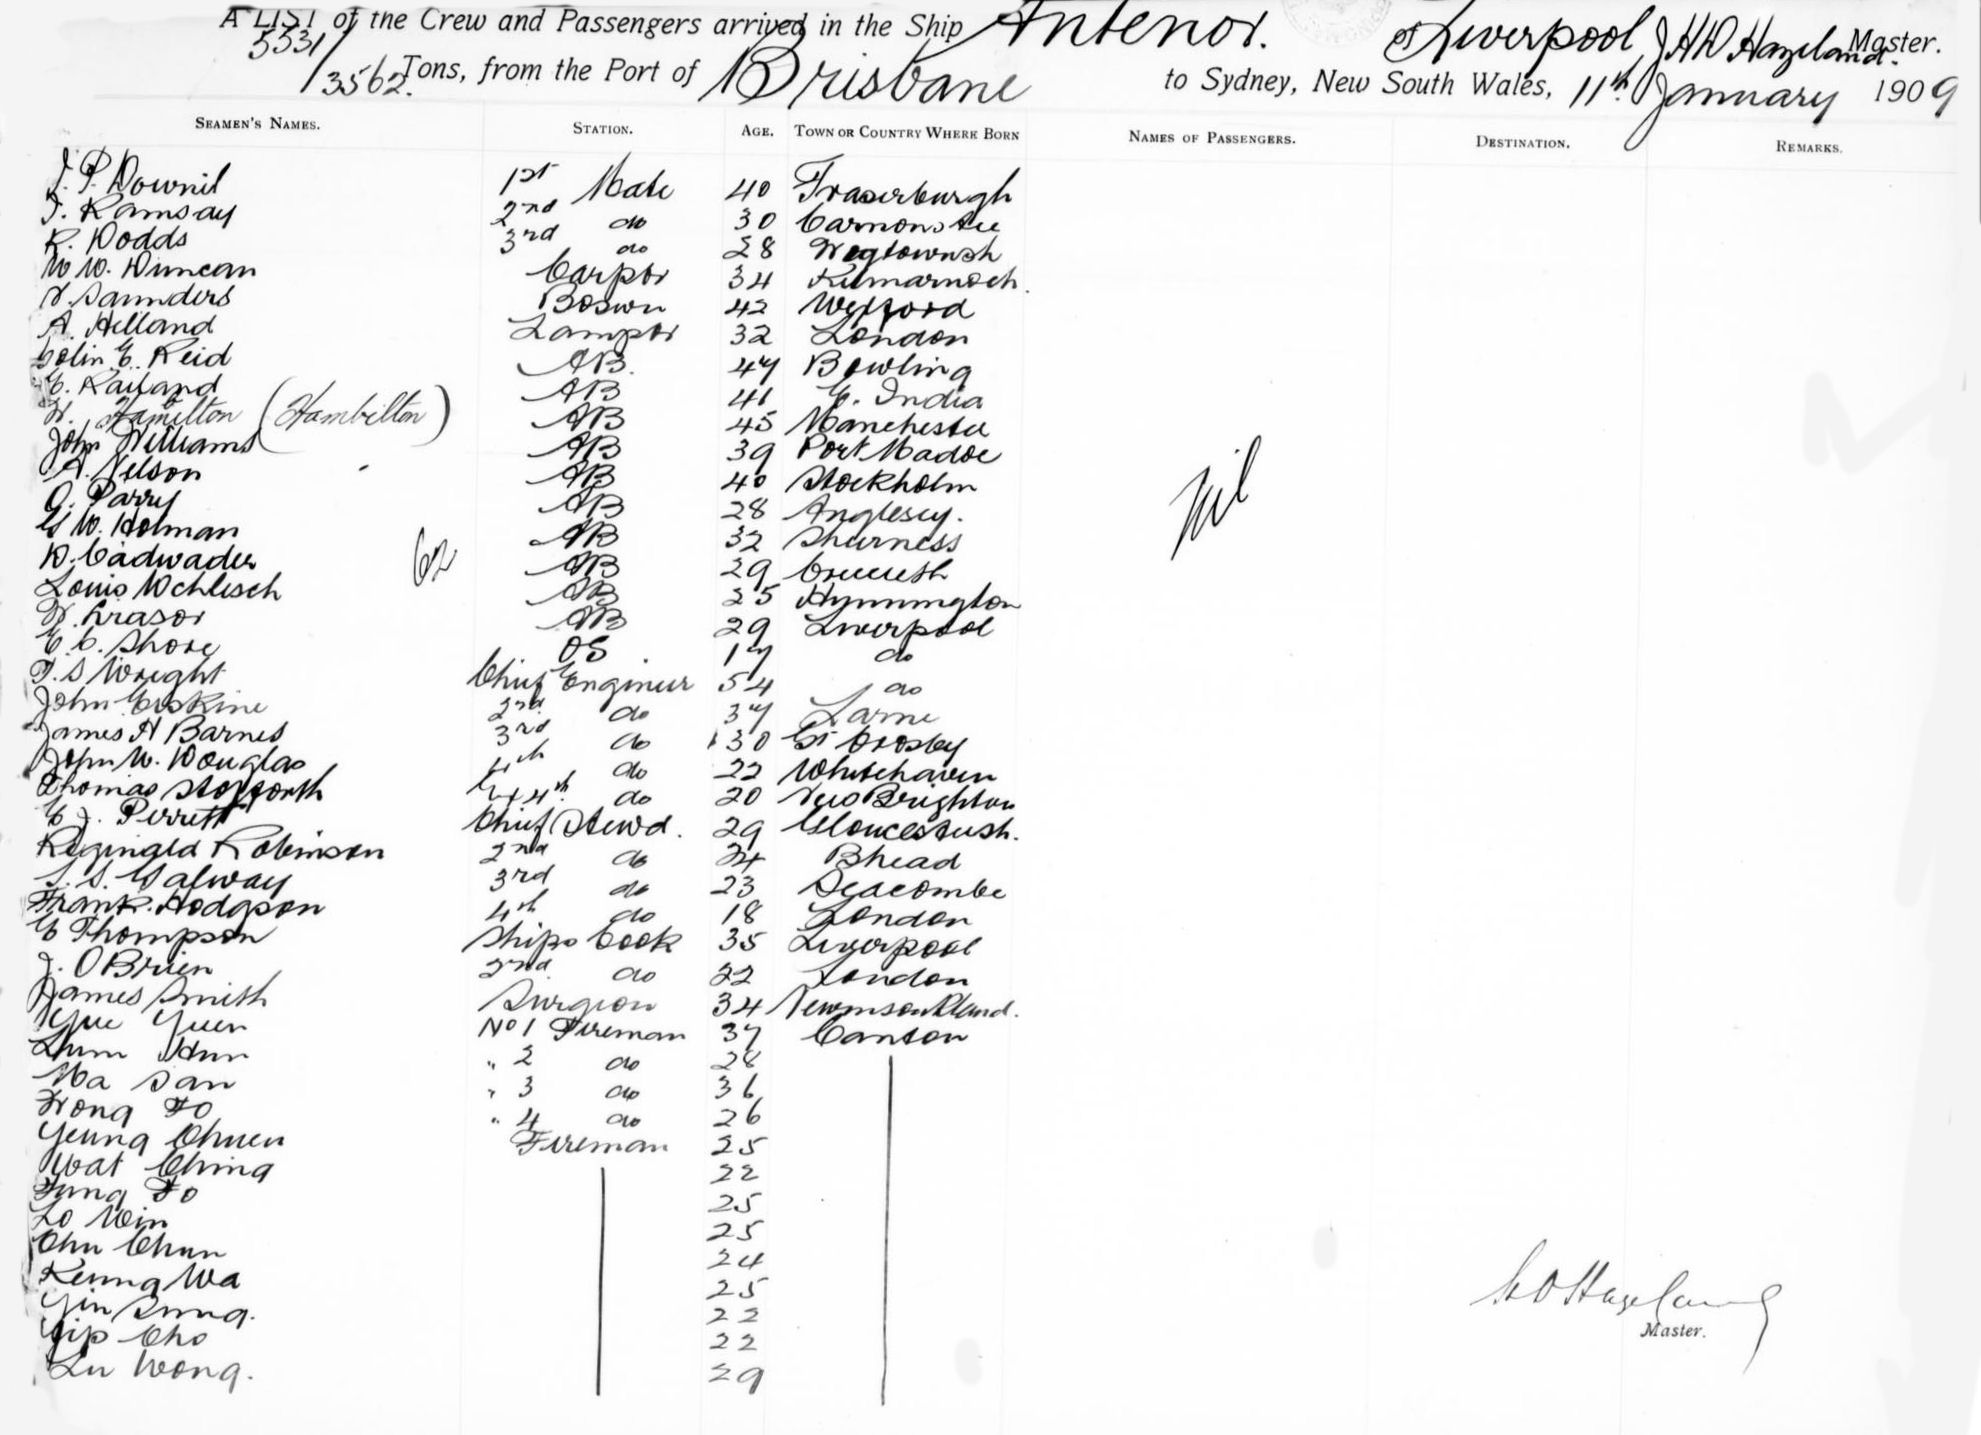 A LIST of the Crew and Passengers arrived in the Ship Antenor. of Liverpool, J H D Hazeland. Master.
5531/3562. Tons, from the Port of Brisbane to Sydney, New South Wales, 11th January 1909
SEAMEN'S NAMES. STATION. AGE. TOWN OR COUNTRY WHERE BORN NAMES OF PASSENGERS. DESTINATION. REMARKS.
J. P. Downie 1st Mate 40 Fraserburgh
J. Ramsay 2nd do 30 Carnoustie
R. Dodds 3rd do 28 Wegtownsh
W. W. Duncan Carptr 34 Kilmarnock.
Saunders Boswn 42 Wexford
A. Helland Lamptr 32 London
Colin C. Reid AB. 47 Bowling
Railand AB 41 E. India
W. Hamilton (Hambilton) AB 45 Manchester
John Williams AB 39 Port Madoc
A. Nelson AB 40 Stockholm
Parry AB 28 Anglesey.
G W. Holman AB 32 Sheerness
D. Cadwader AB 29 Criccieth
62
Nil
Louis AB 25
AB 29 Liverpool
E. C. Shore OS 17 do
T. S Wright Chief Engineer 54 do
John Erskine 2nd do 37 Larne
James H Barnes 3rd do 30 Gt Crosby
John W. Douglas 4th do 22 Whitehaven
Thomas Stopforth Ex 4th. do 20 New Brighton
E J. Perrett Chief Stewd. 29 Gloucestersh.
Reginald Robinson 2nd do 24 Bhead
S. Galway 3rd do 23 Seacombe
Frank. Hodgson 4th do 18 London
E Thompson Ships Cook 35 Liverpool
J. OBrien 2nd do 22 London
James Smith Surgeon 34
Yue Yuen No 1 Fireman 37 Canton
Lum Hun " 2 do 28
Ma San " 3 do 36
Wong Fo " 4 do 26
Yeung Chuen Fireman 25
Wat Ching 22
Fung Fo 25
Lo Win 25
Chu Chun 24
Keung Wa 25
Yin Sung. 22
Yip Cho 22
Lu Wong. 29
Hazeland
Master.